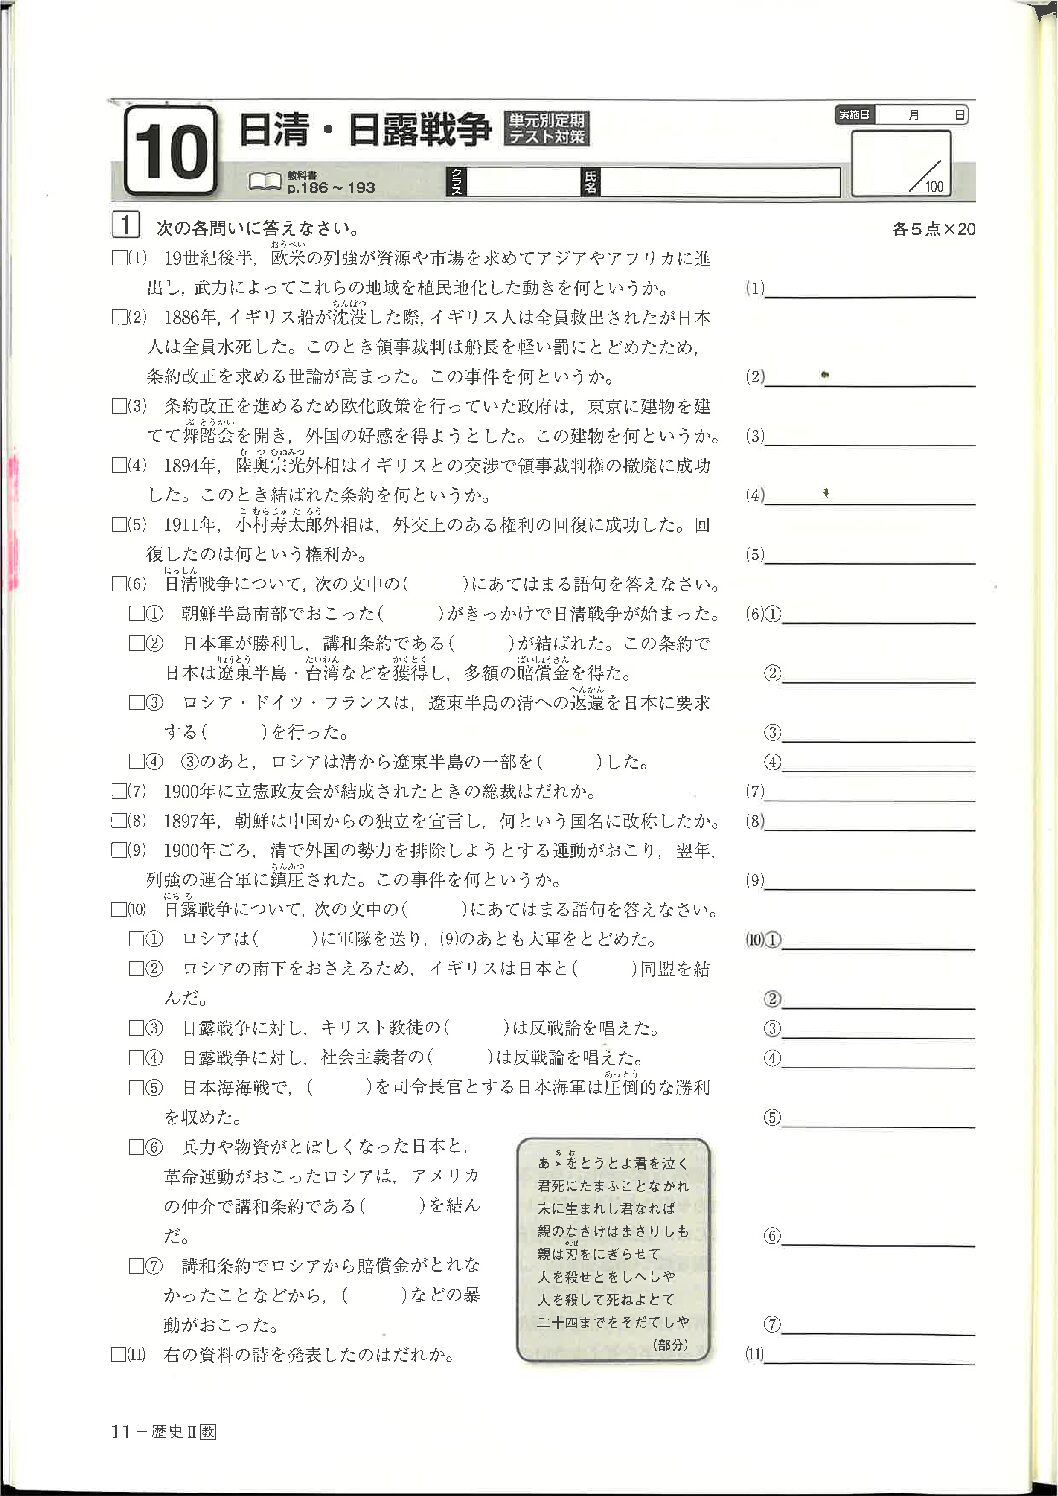 10 日清・日露戦争 単元別定期テスト対策
実施日 月 日
教科書 p.186～193
クラス 氏名 /100
1 次の各問いに答えなさい。 各5点×20
□(1) 19世紀後半，欧米の列強が資源や市場を求めてアジアやアフリカに進
出し，武力によってこれらの地域を植民地化した動きを何というか。 (1)
□(2) 1886年，イギリス船が沈没した際，イギリス人は全員救出されたが日本
人は全員水死した。このとき領事裁判は船長を軽い罰にとどめたため，
条約改正を求める世論が高まった。この事件を何というか。 (2)
□(3) 条約改正を進めるため欧化政策を行っていた政府は，東京に建物を建
てて舞踏会を開き，外国の好感を得ようとした。この建物を何というか。 (3)
□(4) 1894年，陸奥宗光外相はイギリスとの交渉で領事裁判権の撤廃に成功
した。このとき結ばれた条約を何というか。 (4)
□(5) 1911年，小村寿太郎外相は，外交上のある権利の回復に成功した。回
復したのは何という権利か。 (5)
□(6) 日清戦争について，次の文中の( )にあてはまる語句を答えなさい。
□① 朝鮮半島南部でおこった( )がきっかけで日清戦争が始まった。 (6)①
□② 日本軍が勝利し，講和条約である( )が結ばれた。この条約で
日本は遼東半島・台湾などを獲得し，多額の賠償金を得た。 ②
□③ ロシア・ドイツ・フランスは，遼東半島の清への返還を日本に要求
する( )を行った。 ③
□④ ③のあと，ロシアは清から遼東半島の一部を( )した。 ④
□(7) 1900年に立憲政友会が結成されたときの総裁はだれか。 (7)
□(8) 1897年，朝鮮は中国からの独立を宣言し，何という国名に改称したか。 (8)
□(9) 1900年ごろ，清で外国の勢力を排除しようとする運動がおこり，翌年，
列強の連合軍に鎮圧された。この事件を何というか。 (9)
□(10) 日露戦争について，次の文中の( )にあてはまる語句を答えなさい。
□① ロシアは( )に軍隊を送り，(9)のあとも大軍をとどめた。 (10)①
□② ロシアの南下をおさえるため，イギリスは日本と( )同盟を結
んだ。 ②
□③ 日露戦争に対し，キリスト教徒の( )は反戦論を唱えた。 ③
□④ 日露戦争に対し，社会主義者の( )は反戦論を唱えた。 ④
□⑤ 日本海海戦で，( )を司令長官とする日本海軍は圧倒的な勝利
を収めた。 ⑤
□⑥ 兵力や物資がとぼしくなった日本と，
革命運動がおこったロシアは，アメリカ
の仲介で講和条約である( )を結ん
だ。 ⑥
□⑦ 講和条約でロシアから賠償金がとれな
かったことなどから，( )などの暴
動がおこった。 ⑦
□(11) 右の資料の詩を発表したのはだれか。 (11)
あゝをとうとよ君を泣く
君死にたまふことなかれ
末に生まれし君なれば
親のなさけはまさりしも
親は刃をにぎらせて
人を殺せとをしへしや
人を殺して死ねよとて
二十四までをそだてしや
(部分)
11－歴史Ⅱ教